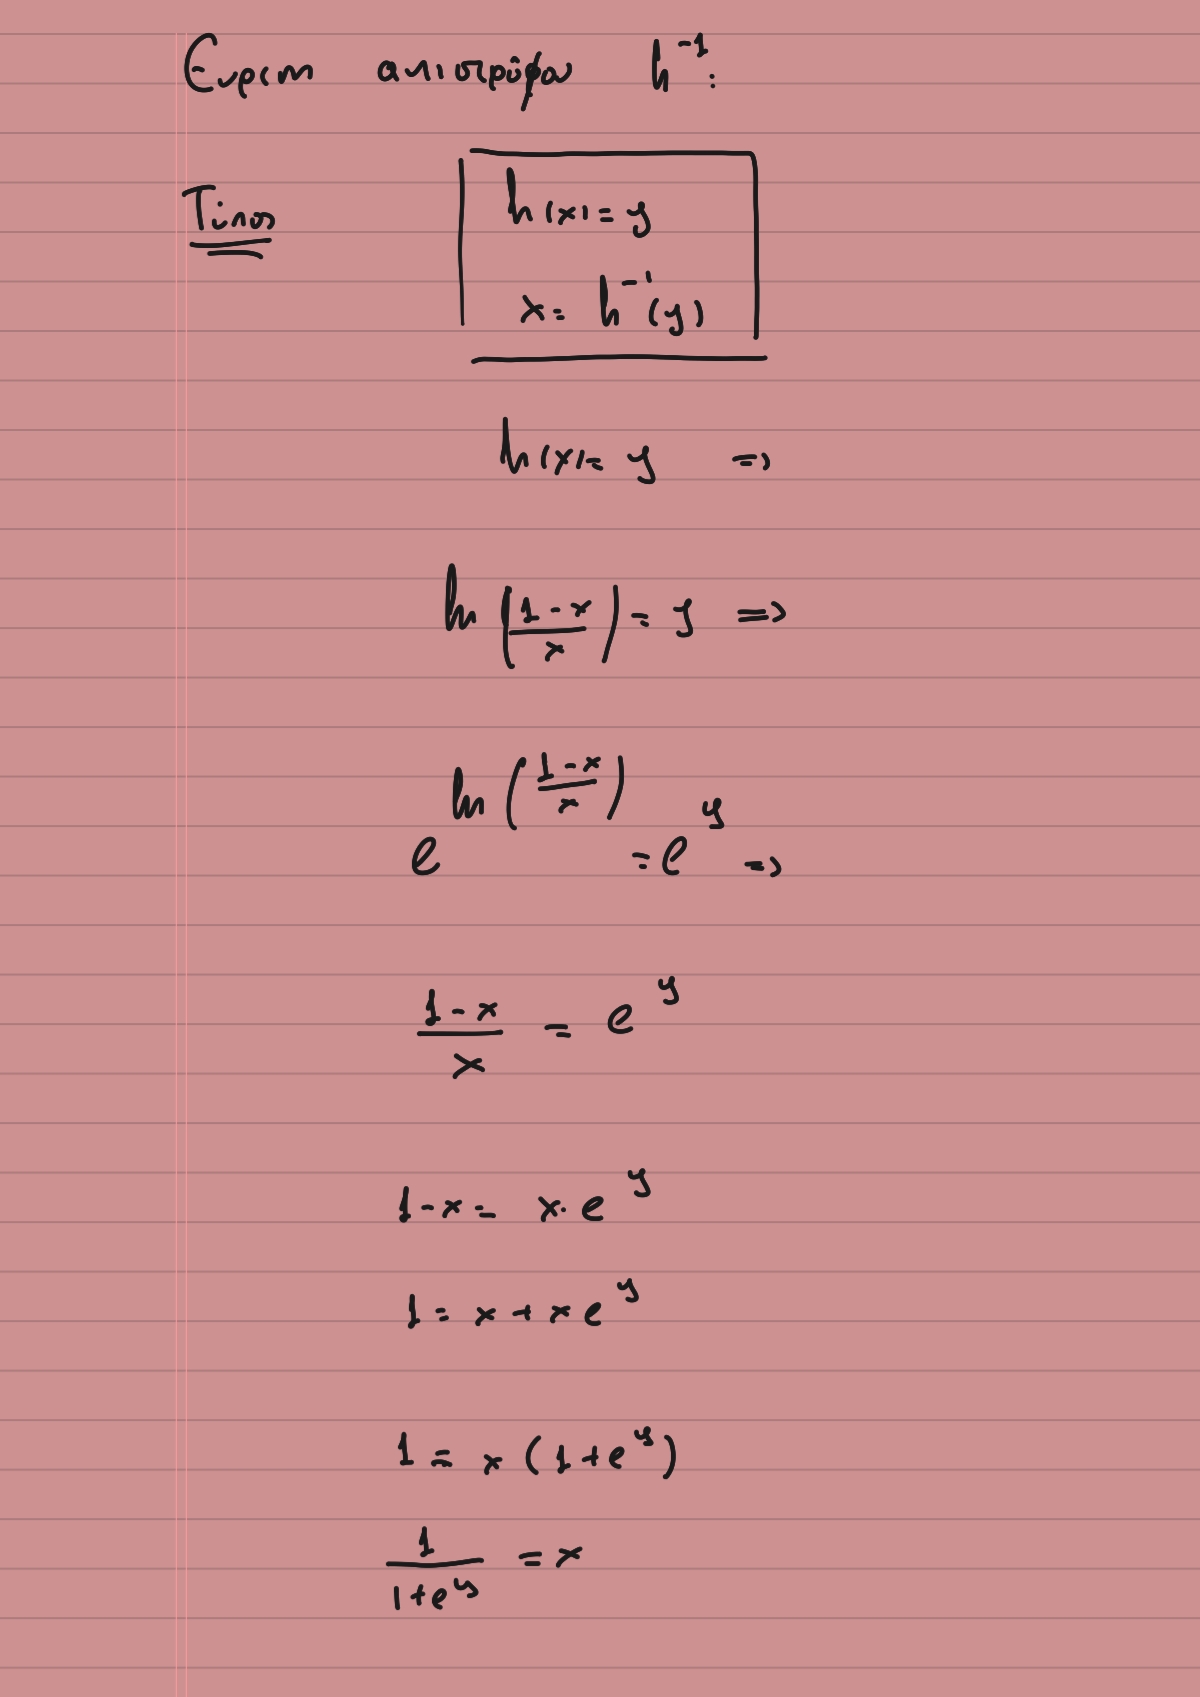 Ευρεση αντιστρόφου h⁻¹:
Τύπος
h(x) = y
x = h⁻¹(y)
h(x) = y =>
ln((1-x)/x) = y =>
e^(ln((1-x)/x)) = e^y =>
(1-x)/x = e^y
1-x = x·e^y
1 = x + xe^y
1 = x(1+e^y)
1/(1+e^y) = x